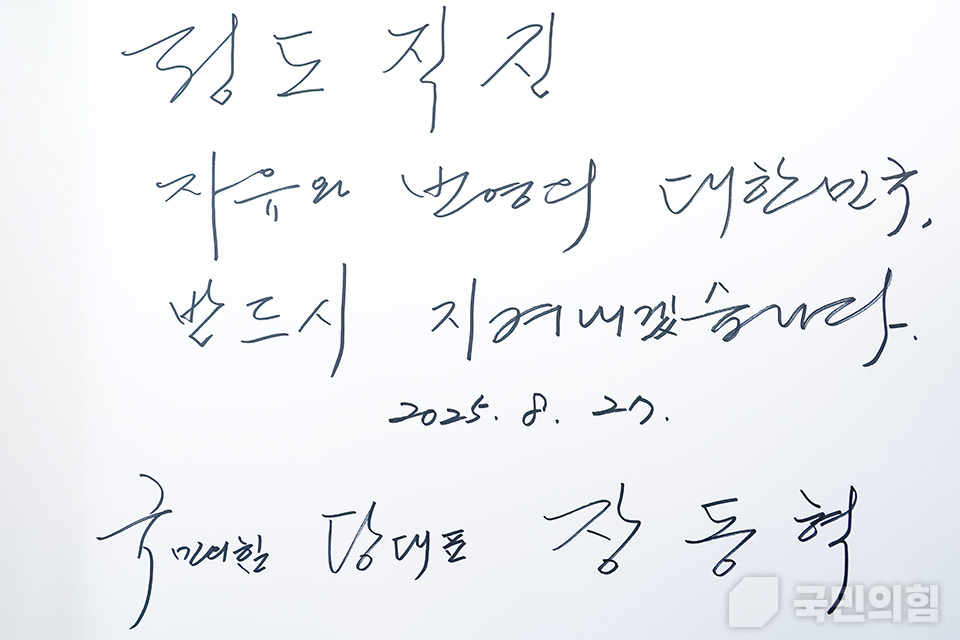 정도직진
자유와 번영의 대한민국,
반드시 지켜내겠습니다.
2025. 8. 27.
국민의힘 당대표 장동혁
국민의힘